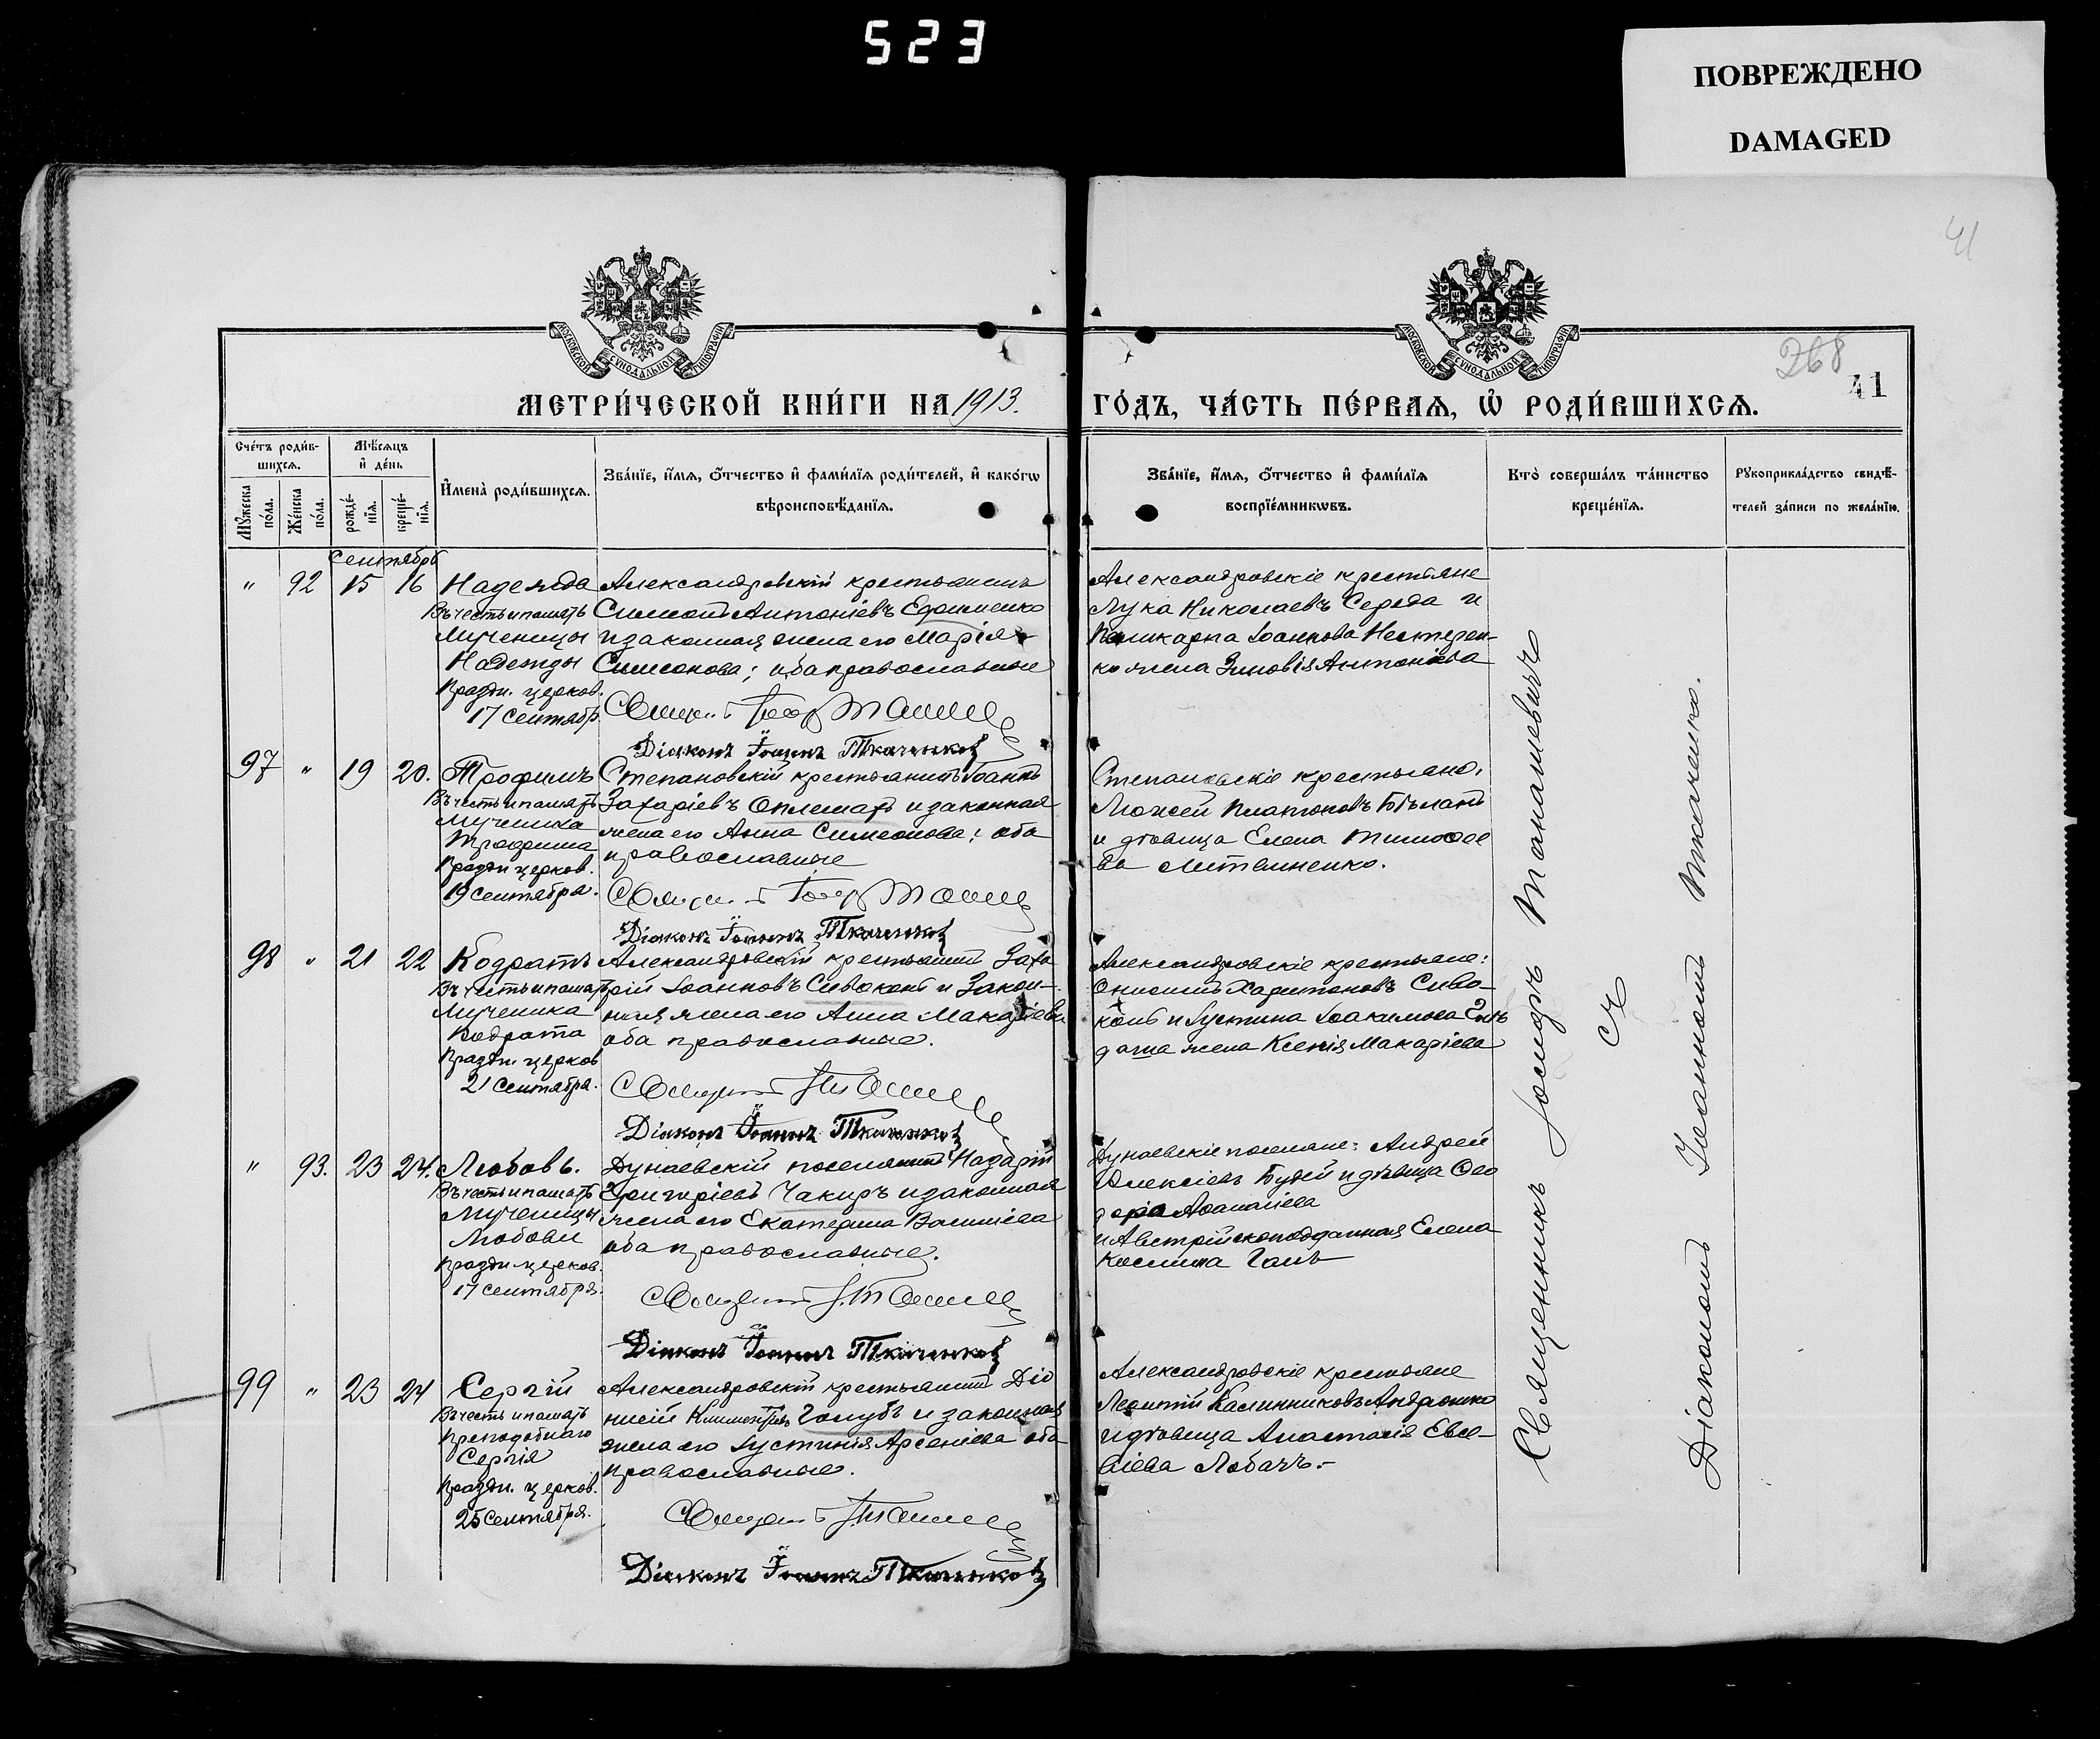 523
ПОВРЕЖДЕНО
DAMAGED
41
МОСКОВСКОЙ СѴНОДАЛЬНОЙ ТИПОГРАФІИ
МОСКОВСКОЙ СѴНОДАЛЬНОЙ ТИПОГРАФІИ
268
41
МЕТРИ́ЧЕСКОЙ КНИ́ГИ НА 1913. ГО́ДЪ, ЧА́СТЬ ПЕ́РВАѦ, Ѡ҆ РОДИ́ВШИХСѦ.
Сче́тъ роди́в-
шихсѧ.
Мꙋ́жеска по́ла.
Же́нска по́ла.
Мѣ́сѧцъ и҆ де́нь
рожде́-нїѧ.
креще́-нїѧ.
И҆мена̀ роди́вшихсѧ.
Зва́нїе, и҆́мѧ, ѻ҆́тчество и҆ фами́лїѧ роди́телей, и҆ како́гѡ
вѣроисповѣ́данїѧ.
Зва́нїе, и҆́мѧ, ѻ҆́тчество и҆ фами́лїѧ
воспрїе́мникѡвъ.
Кто̀ соверша́лъ та́инство
креще́нїѧ.
Рꙋкоприкла́дство свидѣ́-
телей за́писи по жела́нїю.
Сентябрь
" 92 15 16 Надежда
Въ честь и память
Мученицы
Надежды
Праздн. церков.
17 Сентябр.
Александровскій крестьянинъ
Симеонъ Антоніевъ Ефименко
и законная жена его Марія
Симеонова; оба православные
Діаконъ Іоаннъ Ткаченко
Александровскіе крестьяне
Лука Николаевъ Середа и
Поликарпа Іоаннова Нестерен-
ко жена Зиновія Антоніева
97 " 19 20. Трофимъ
Въ честь и память
Мученика
Трофима
Праздн церков.
19 Сентября.
Степановскій крестьянинъ Іоаннъ
Захаріевъ и законная
жена его Анна Симеонова; оба
православные
Діаконъ Іоаннъ Ткаченко
Степановскіе крестьяне:
Моисей Платоновъ
и дѣвица Елена Тимоѳее
ва Литвиненко.
98 " 21 22 Кодратъ
Въ честь и память
Мученика
Кодрата
Праздн. церков
21 Сентября.
Александровскій крестьянинъ Заха
рій Іоанновъ Сивоконь и Закон-
ная жена его Анна Макаріева
оба православные.
Діаконъ Іоаннъ Ткаченко
Александровскіе крестьяне:
Онисимъ Харитоновъ Сиво-
конь и Іустина Іоакимова
жена Ксенія Макаріева
" 93. 23 24. Любовь.
Въ честь и память
Мученицы
Любови
Праздн церков.
17 Сентября.
Дунаевскій поселянинъ Назарій
Григоріевъ Чакиръ и законная
жена его Екатерина Василіева
оба православные.
Діаконъ Іоаннъ Ткаченко
Дунаевскіе поселяне: Андрей
Алексіевъ и дѣвица Ѳео
дора Аѳанасіева
и Австрійскоподданная Елена
Космина Гань
99 " 23 24 Сергій
Въ честь и память
Преподобнаго
Сергія
Праздн. церков.
25 Сентября.
Александровскій крестьянинъ Діо
нисій Климентіевъ Голубъ и законная
жена его Іустинія Арсеніева оба
православные.
Діаконъ Іоаннъ Ткаченко
Александровскіе крестьяне
Леонтій Калинниковъ
и дѣвица Анастасія Евсе-
віева Лобачъ.-
Священникъ Іосифъ Танашевичъ
съ
Діакономъ Іоанномъ Ткаченко.